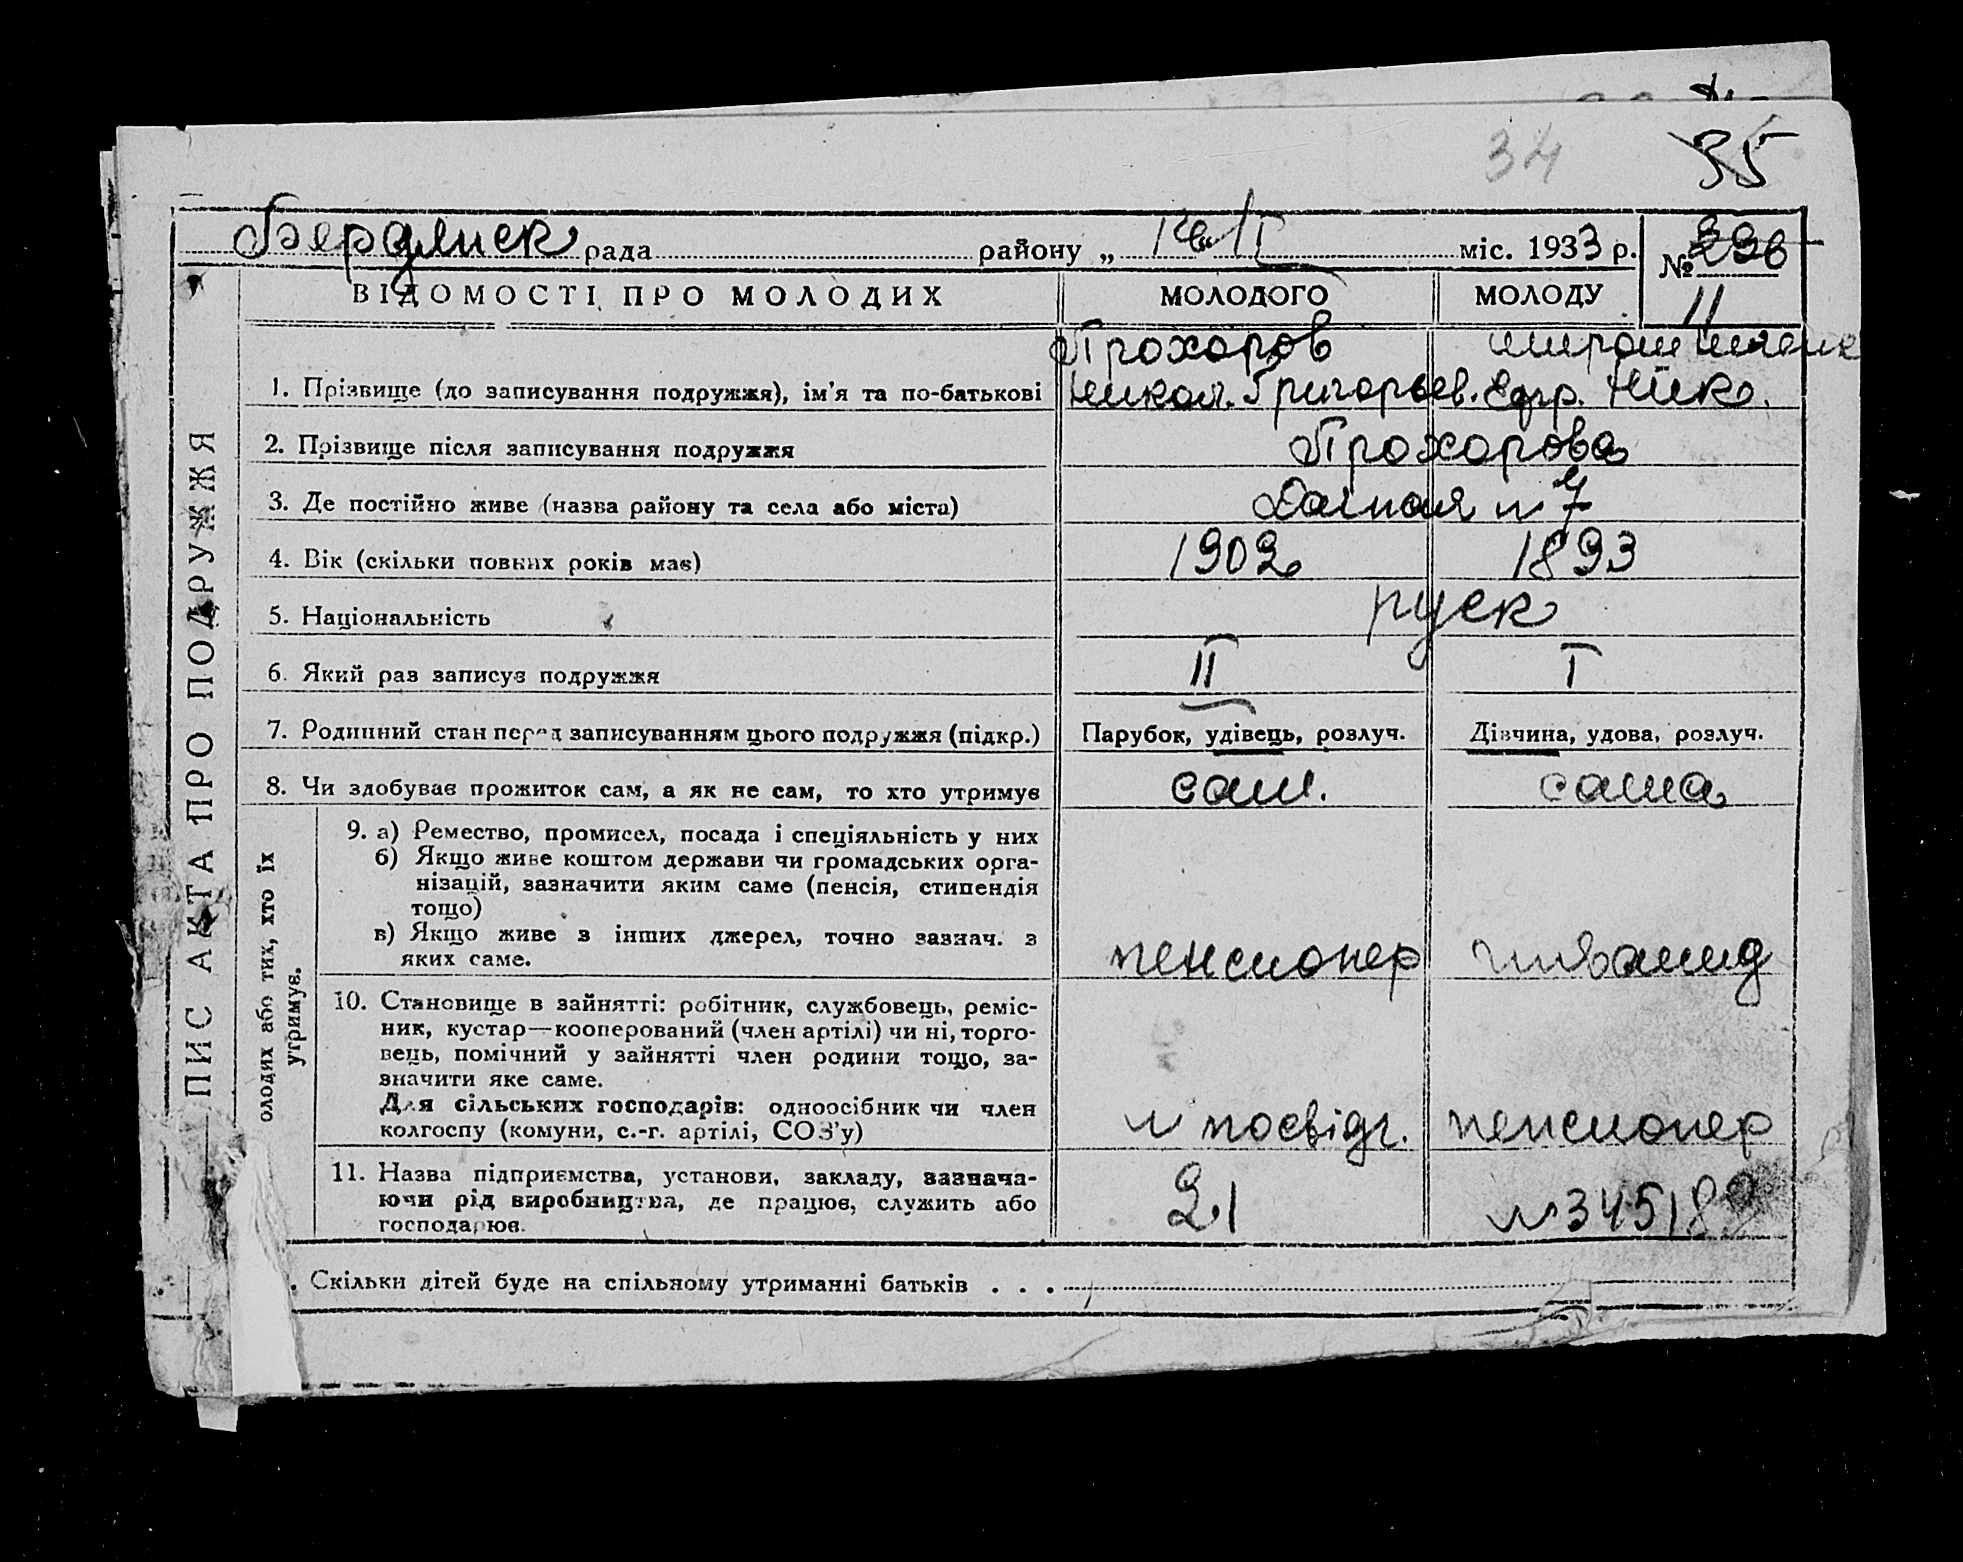 34 35
Бердянск рада района „ II міс. 1933 р. №
11
ВІДОМОСТІ ПРО МОЛОДИХ МОЛОДОГО МОЛОДУ
Прохоров
1. Прізвище (до записування подружжя), ім'я та по-батькові Никол. Григорьев. Нико.
2. Прізвище після записування подружжя Прохорова
3. Де постійно живе (назва району та села або міста) Дачная № 7
4. Вік (скільки повних років має) 1902 1893
5. Національність руск
6. Який раз записує подружжя II I
7. Родинний стан перед записуванням цього подружжя (підкр.) Парубок, удівець, розлуч. Дівчина, удова, розлуч.
8. Чи здобуває прожиток сам, а як не сам, то хто утримує сам. сама
9. а) Ремество, промисел, посада і спеціяльність у них
б) Якщо живе коштом держави чи громадських орга-
нізацій, зазначити яким саме (пенсія, стипендія
тощо)
в) Якщо живе з інших джерел, точно зазнач. з
яких саме. пенсионер инвалид
10. Становище в зайнятті: робітник, службовець, реміс-
ник, кустар—кооперований (член артілі) чи ні, торго-
вець, помічний у зайнятті член родини тощо, за-
значити яке саме.
Для сільських господарів: одноосібник чи член
колгоспу (комуни, с.-г. артілі, СОЗ'у) № посвідч. пенсионер
11. Назва підприємства, установи, закладу, зазнача-
ючи рід виробництва, де працює, служить або
господарює. 21 № 345189
. Скільки дітей буде на спільному утриманні батьків . . .
ПИС АКТА ПРО ПОДРУЖЖЯ
олодих або тих, хто їх
утримує.